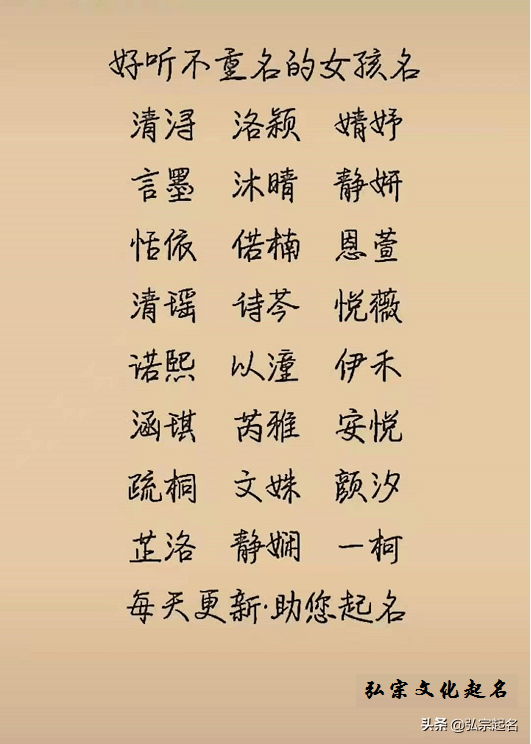 好听不重名的女孩名
清浔 洛颖 婧妤
言墨 沐晴 静妍
恬依 偌楠 恩萱
清瑶 诗芩 悦薇
诺熙 以潼 伊禾
涵琪 芮雅 安悦
疏桐 文姝 颜汐
芷洛 静娴 一柯
每天更新·助您起名
弘宗文化起名
头条 @弘宗起名